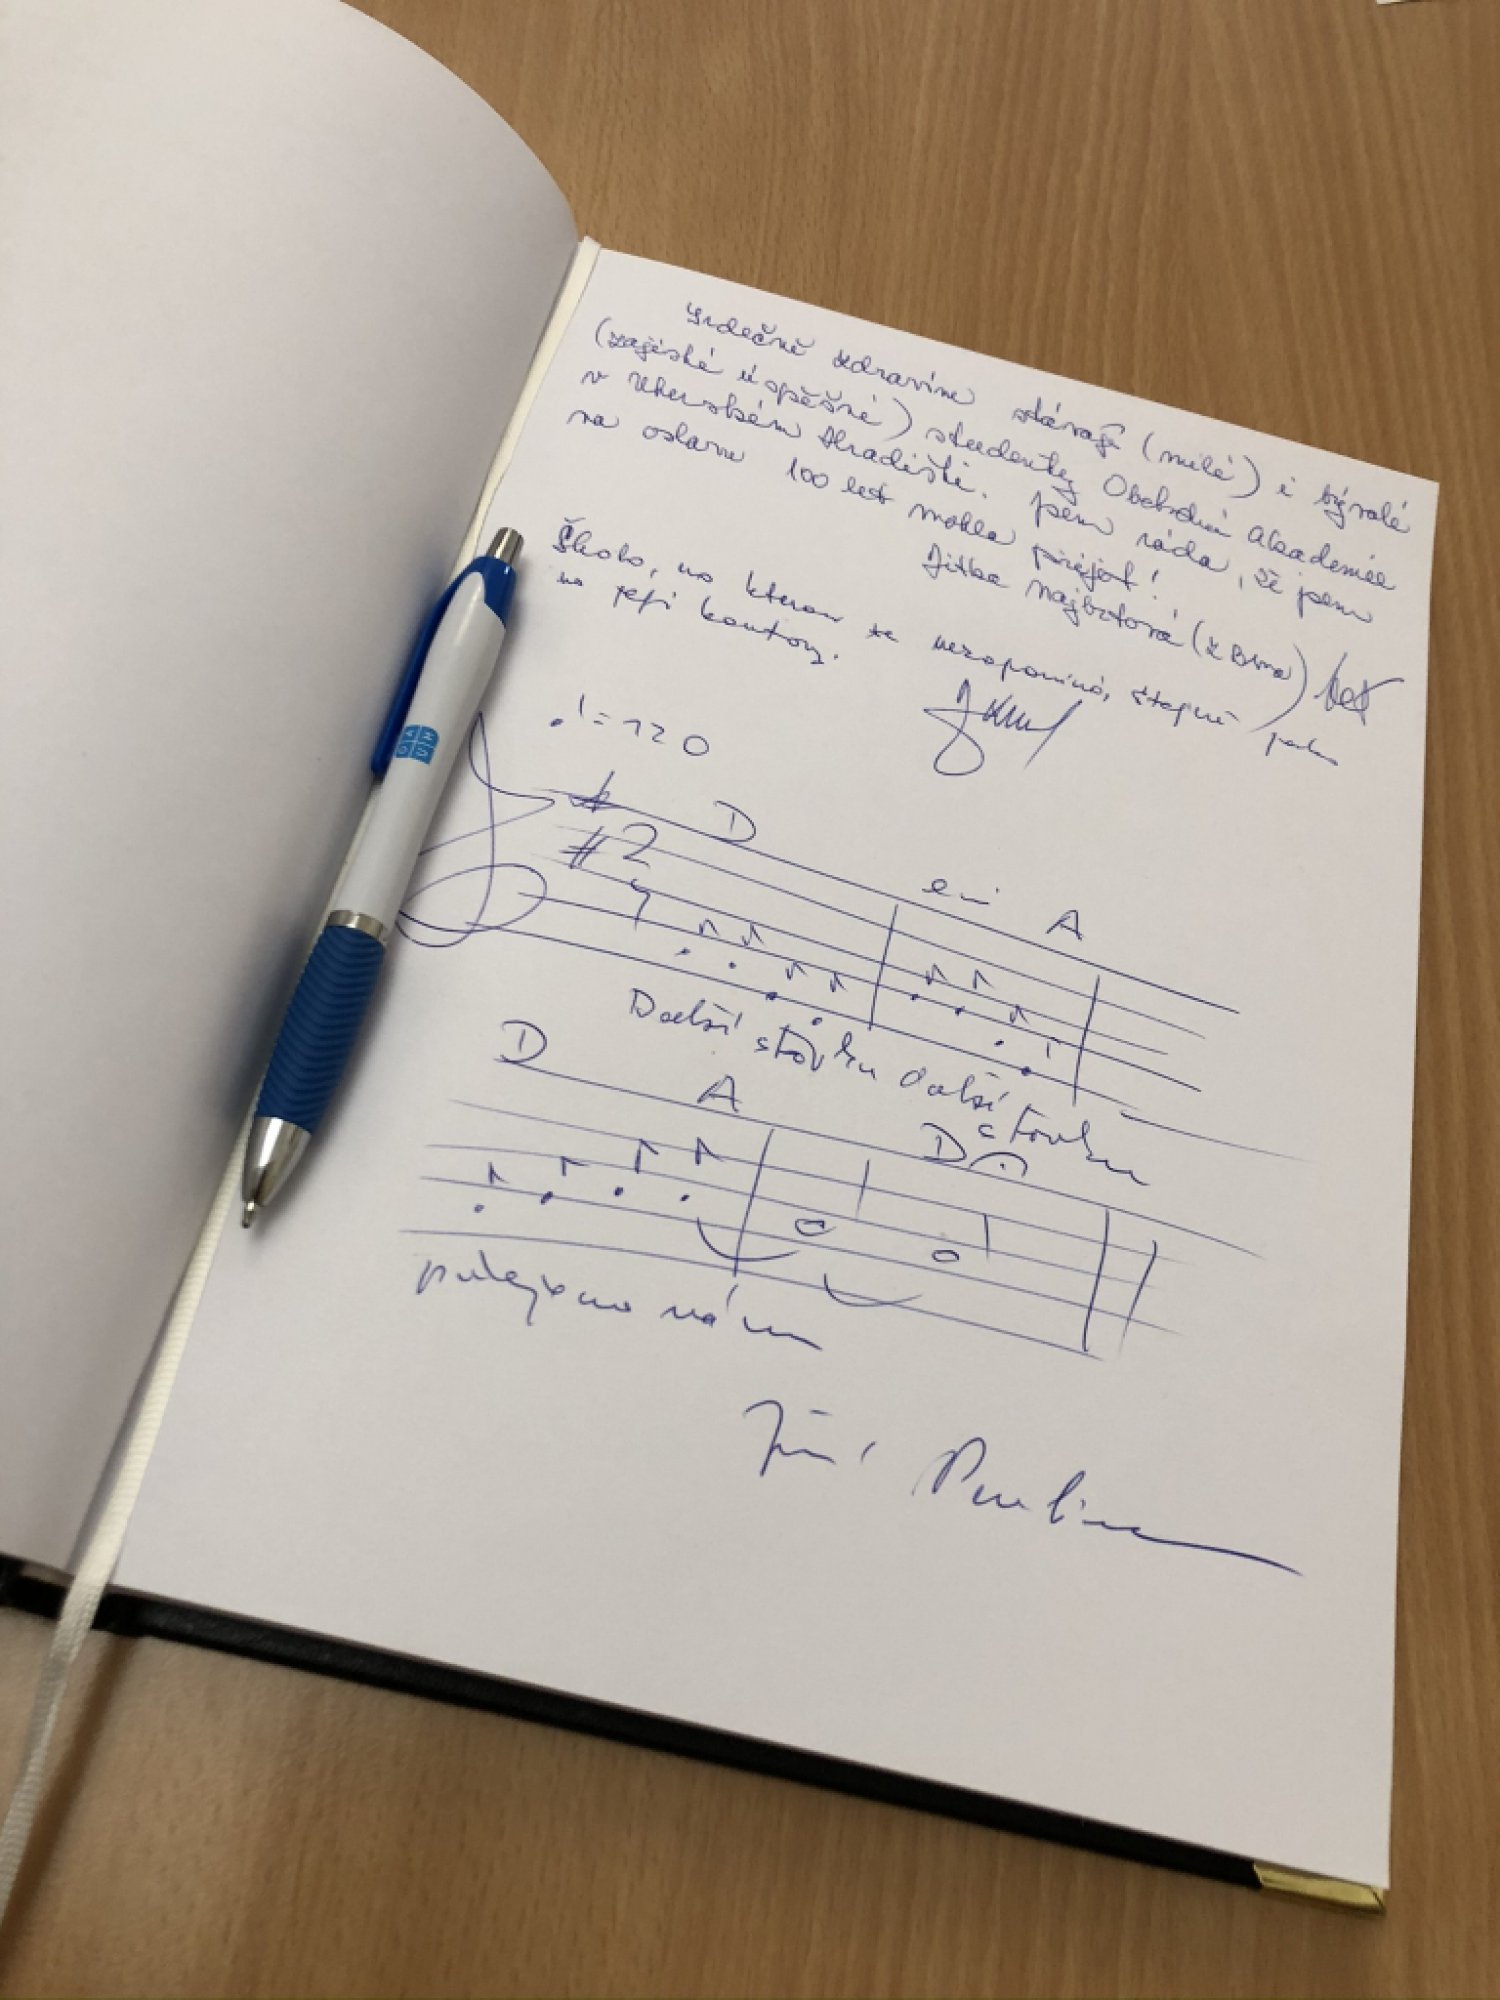 Srdečně zdravím stávající (milé) i bývalé
(zajisté úspěšné) studenty Obchodní akademie
v Uherském Hradišti. Jsem ráda, že jsem
na oslavu 100 let mohla přijet!
Jitka (z Brna)
Školo, na kterou se nezapomíná, štěpně
na její
♩=120
D emi A
2
4
Další stovku další stovku
D A D
přejeme vám
Jiří Pavlica